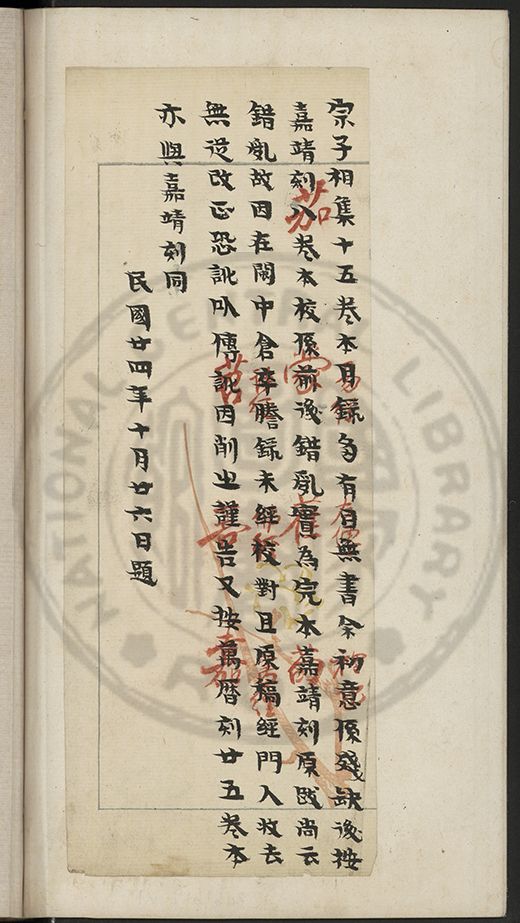 宗子相集十五卷本目錄多有目無書余初意係殘缺後按
嘉靖刻八卷本校係前後錯亂實為完本嘉靖刻原跋尚云
錯亂故因在閩中倉卒謄錄未經校對且原稿經門人收去
無從改正恐訛以傳訛因削之謹告又按萬曆刻廿五卷本
亦與嘉靖刻同
民國廿四年十月廿六日題